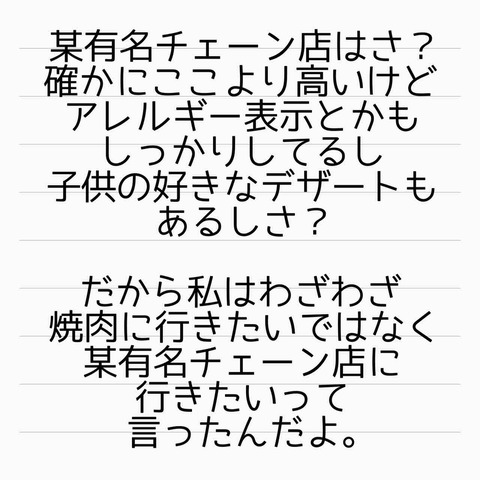 某有名チェーン店はさ？
確かにここより高いけど
アレルギー表示とかも
しっかりしてるし
子供の好きなデザートも
あるしさ？
だから私はわざわざ
焼肉に行きたいではなく
某有名チェーン店に
行きたいって
言ったんだよ。